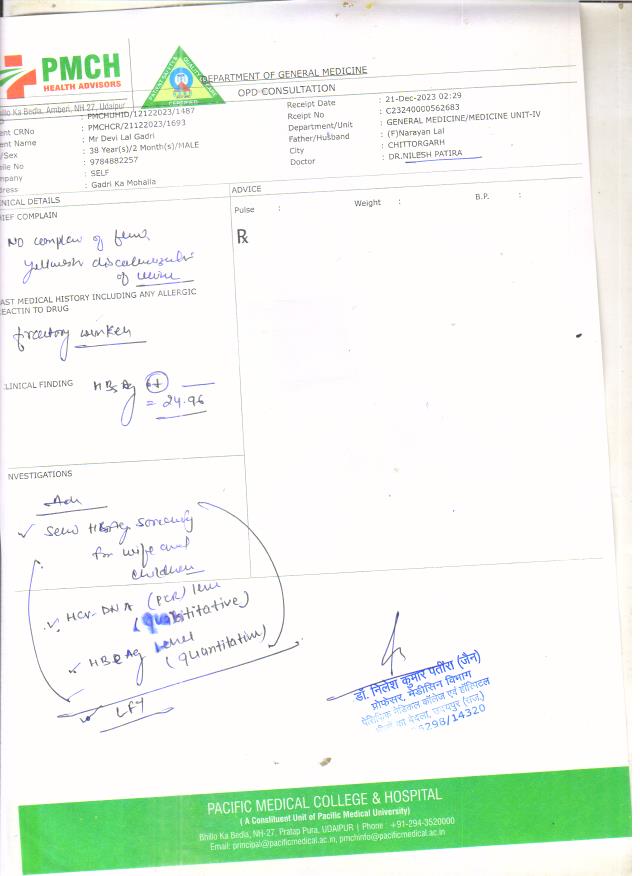 PMCH
HEALTH ADVISORS
CERTIFIED
DEPARTMENT OF GENERAL MEDICINE
OPD CONSULTATION
Bhilo Ka Bedia, Amberi, NH-27, Udaipur
: PMCHUHID/12122023/1487
ent CRNo : PMCHCR/21122023/1693
ent Name : Mr Devi Lal Gadri
/Sex : 38 Year(s)/2 Month(s)/MALE
bile No : 9784882257
mpany : SELF
dress : Gadri Ka Mohalla
Receipt Date : 21-Dec-2023 02:29
Reciept No : C23240000562683
Department/Unit : GENERAL MEDICINE/MEDICINE UNIT-IV
Father/Husband : (F)Narayan Lal
City : CHITTORGARH
Doctor : DR.NILESH PATIRA
INICAL DETAILS
ADVICE
HIEF COMPLAIN
Pulse : Weight : B.P. :
Rx
No complain of
yellowish discolouration
of urine
AST MEDICAL HISTORY INCLUDING ANY ALLERGIC
REACTIN TO DRUG
factory worker
CLINICAL FINDING
HBsAg +
= 24.96
NVESTIGATIONS
Adv
Send HBsAg
for wife and
children
HCV-DNA (PCR) level
(Quantitative)
HBeAg level
(quantitative)
LFT
डॉ. निलेश कुमार पतीरा (जैन)
प्रोफेसर, मेडीसिन विभाग
पेसिफिक मेडिकल कॉलेज एवं हॉस्पिटल
का बेदला, उदयपुर (राज.)
5298/14320
PACIFIC MEDICAL COLLEGE & HOSPITAL
( A Constituent Unit of Pacific Medical University)
Bhilo Ka Bedia, NH-27, Pratap Pura, UDAIPUR | Phone : +91-294-3520000
Email: principal@pacificmedical.ac.in, pmchinfo@pacificmedical.ac.in